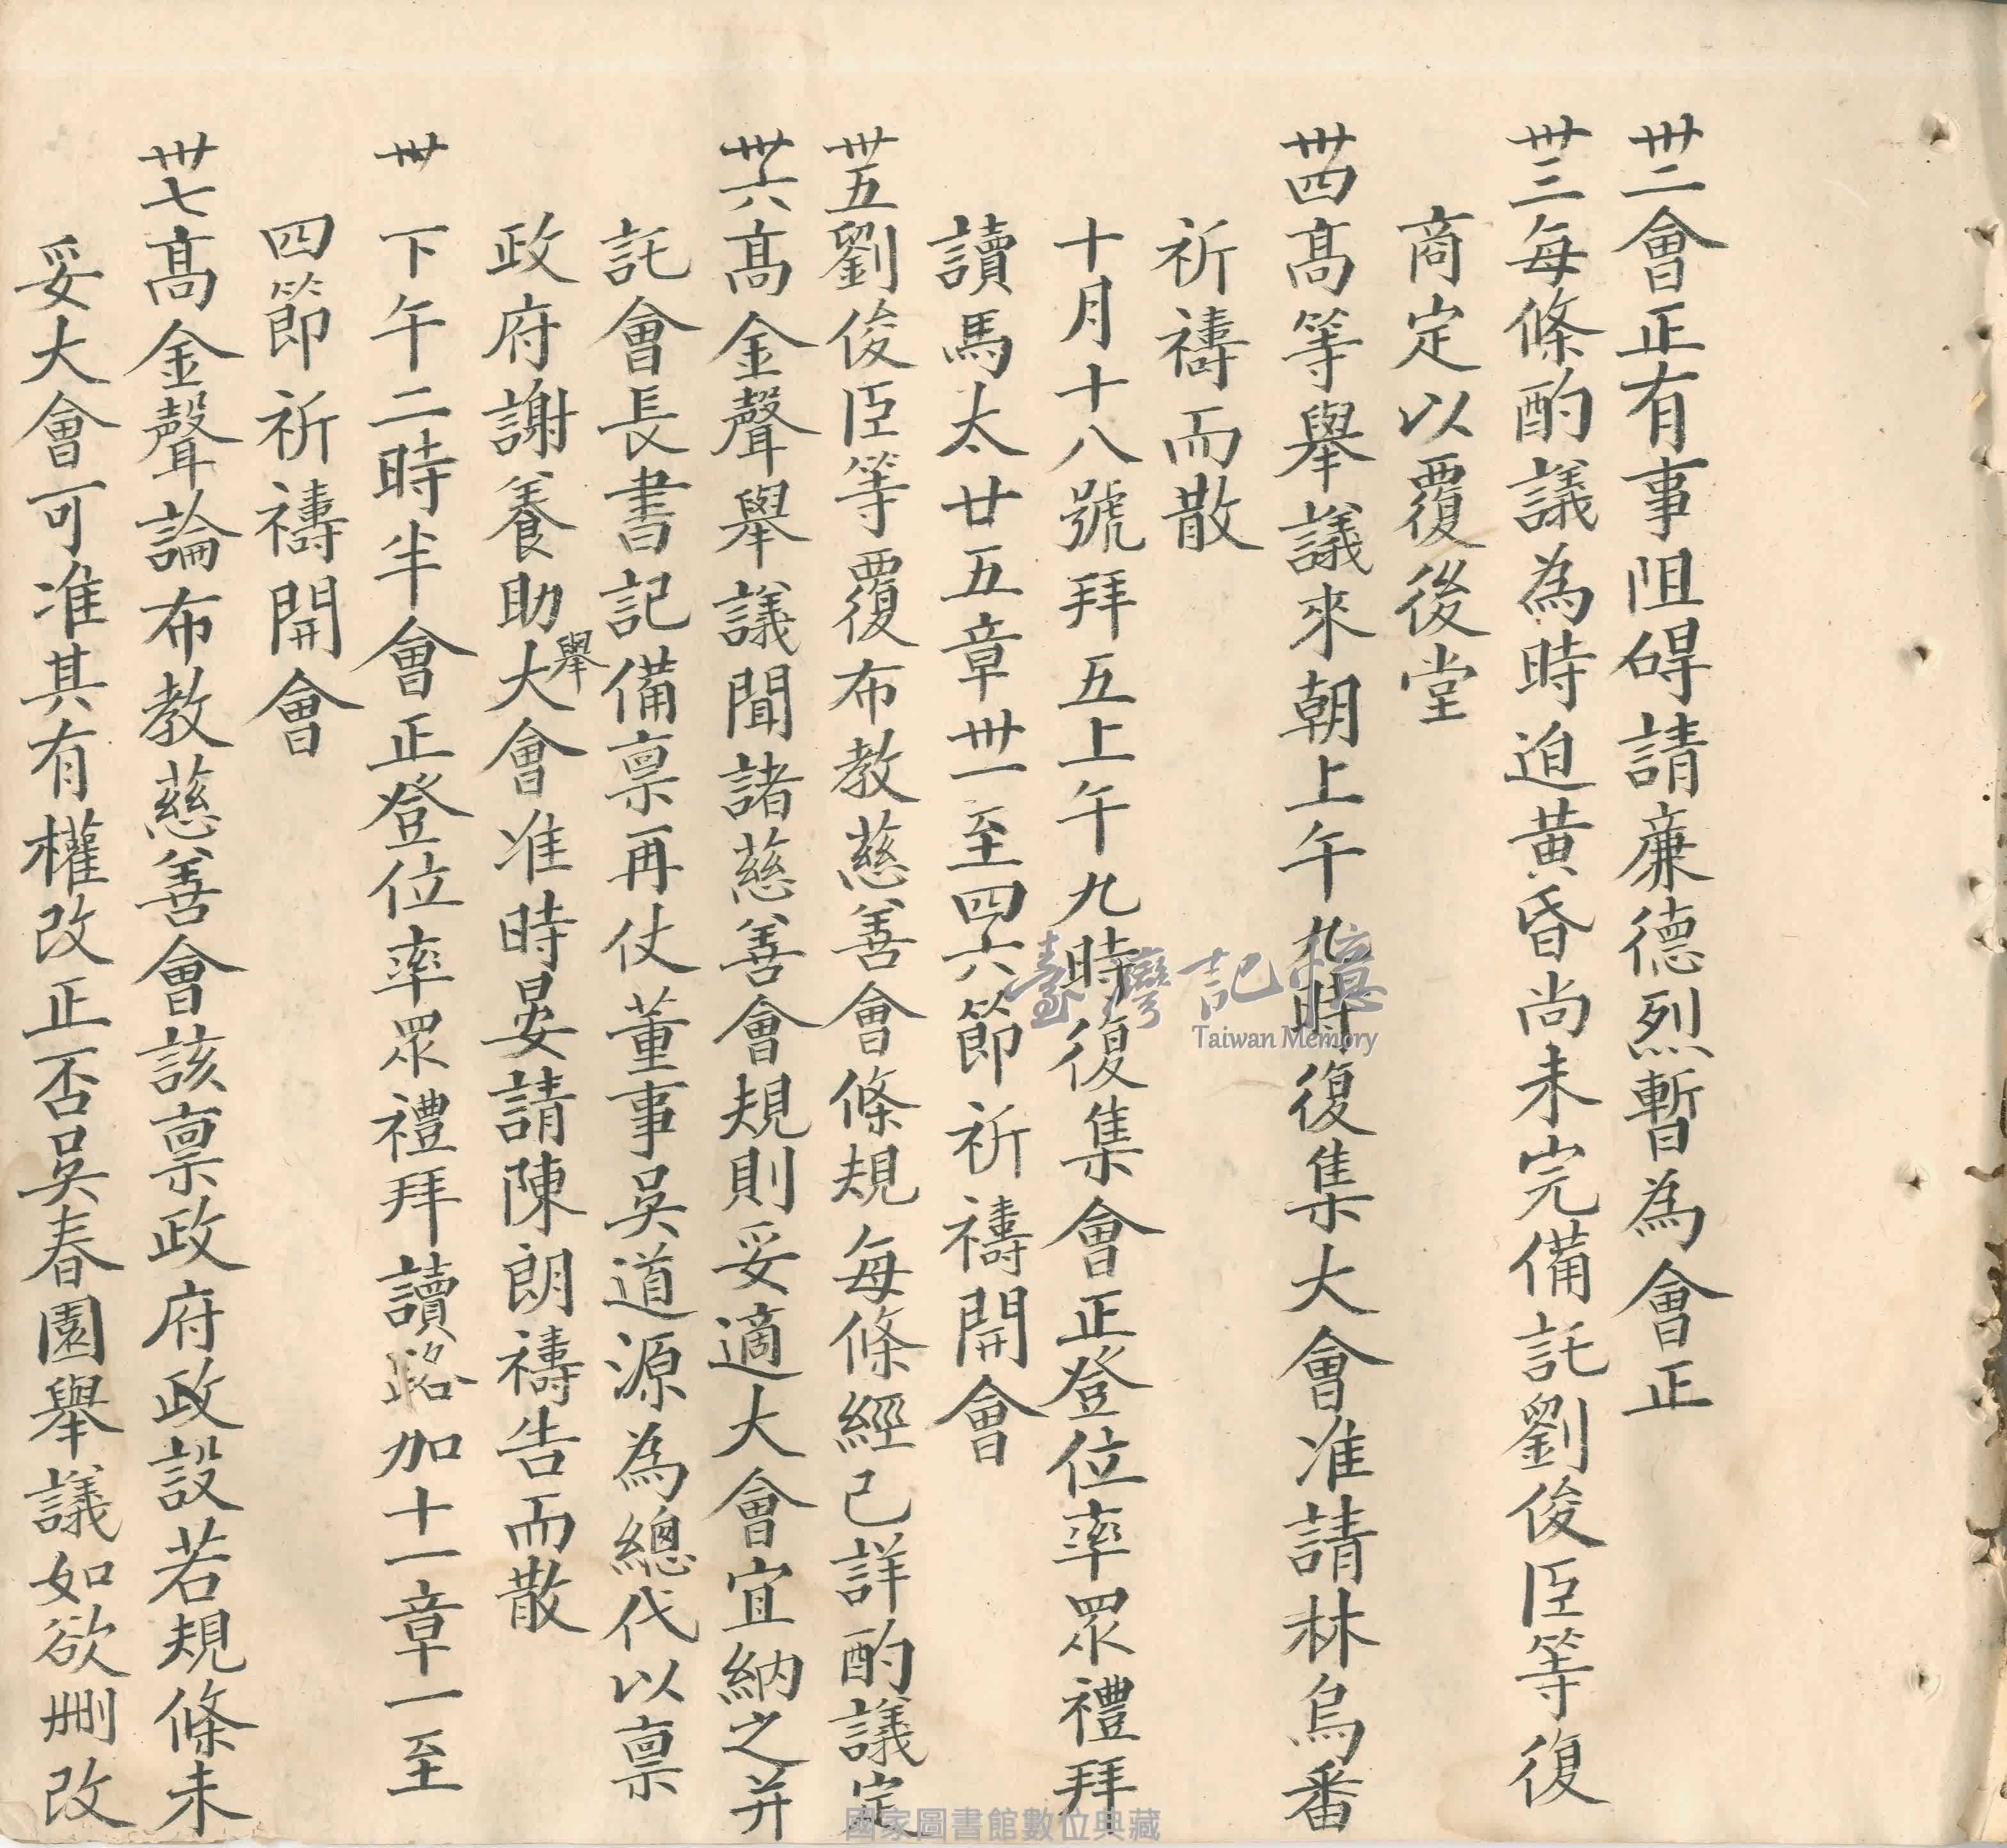 卅二會正有事阻碍請廉德烈暫為會正
卅三每條酌議為時迫黃昏尚未完備託劉俊臣等復
商定以覆後堂
卅四高等舉議來朝上午九時復集大會准請林烏番
祈禱而散
十月十八號拜五上午九時復集會正登位率眾禮拜
讀馬太廿五章卅一至四六節祈禱開會
卅五劉俊臣等覆布教慈善會條規每條經已詳酌議定
卅六高金聲舉議聞諸慈善會規則妥適大會宜納之并
託會長書記備稟再仗董事吳道源為總代以稟
政府謝養助大會准時晏請陳朗禱告而散
舉
卅下午二時半會正登位率眾禮拜讀路加十一章一至
四節祈禱開會
卅七高金聲論布教慈善會該稟政府政設若規條未
妥大會可准其有權改正否吳春園舉議如欲刪改
臺灣記憶
Taiwan Memory
國家圖書館數位典藏